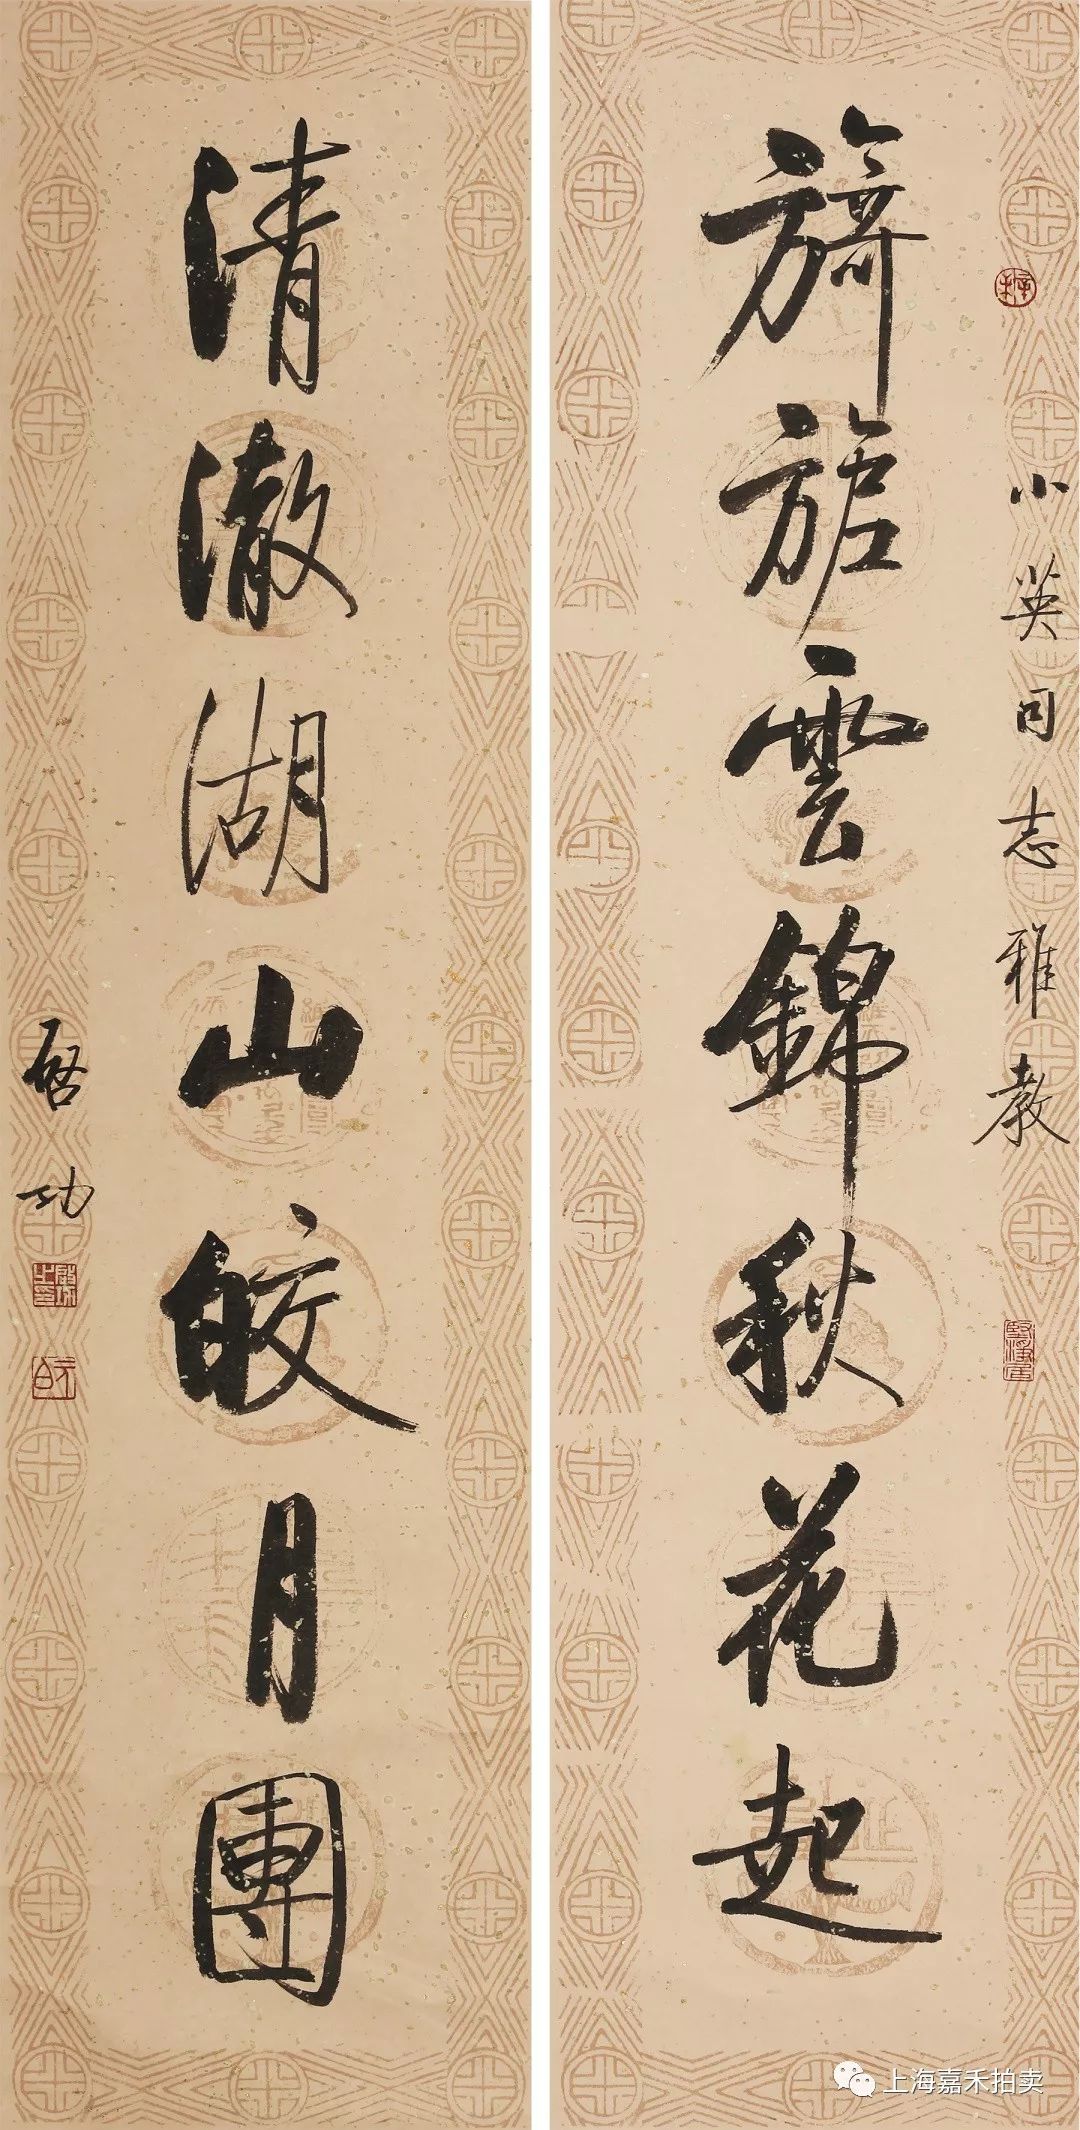 小英同志雅教
旖旎雲錦秋花起
清澈湖山皎月團
启功
元白
上海嘉禾拍卖